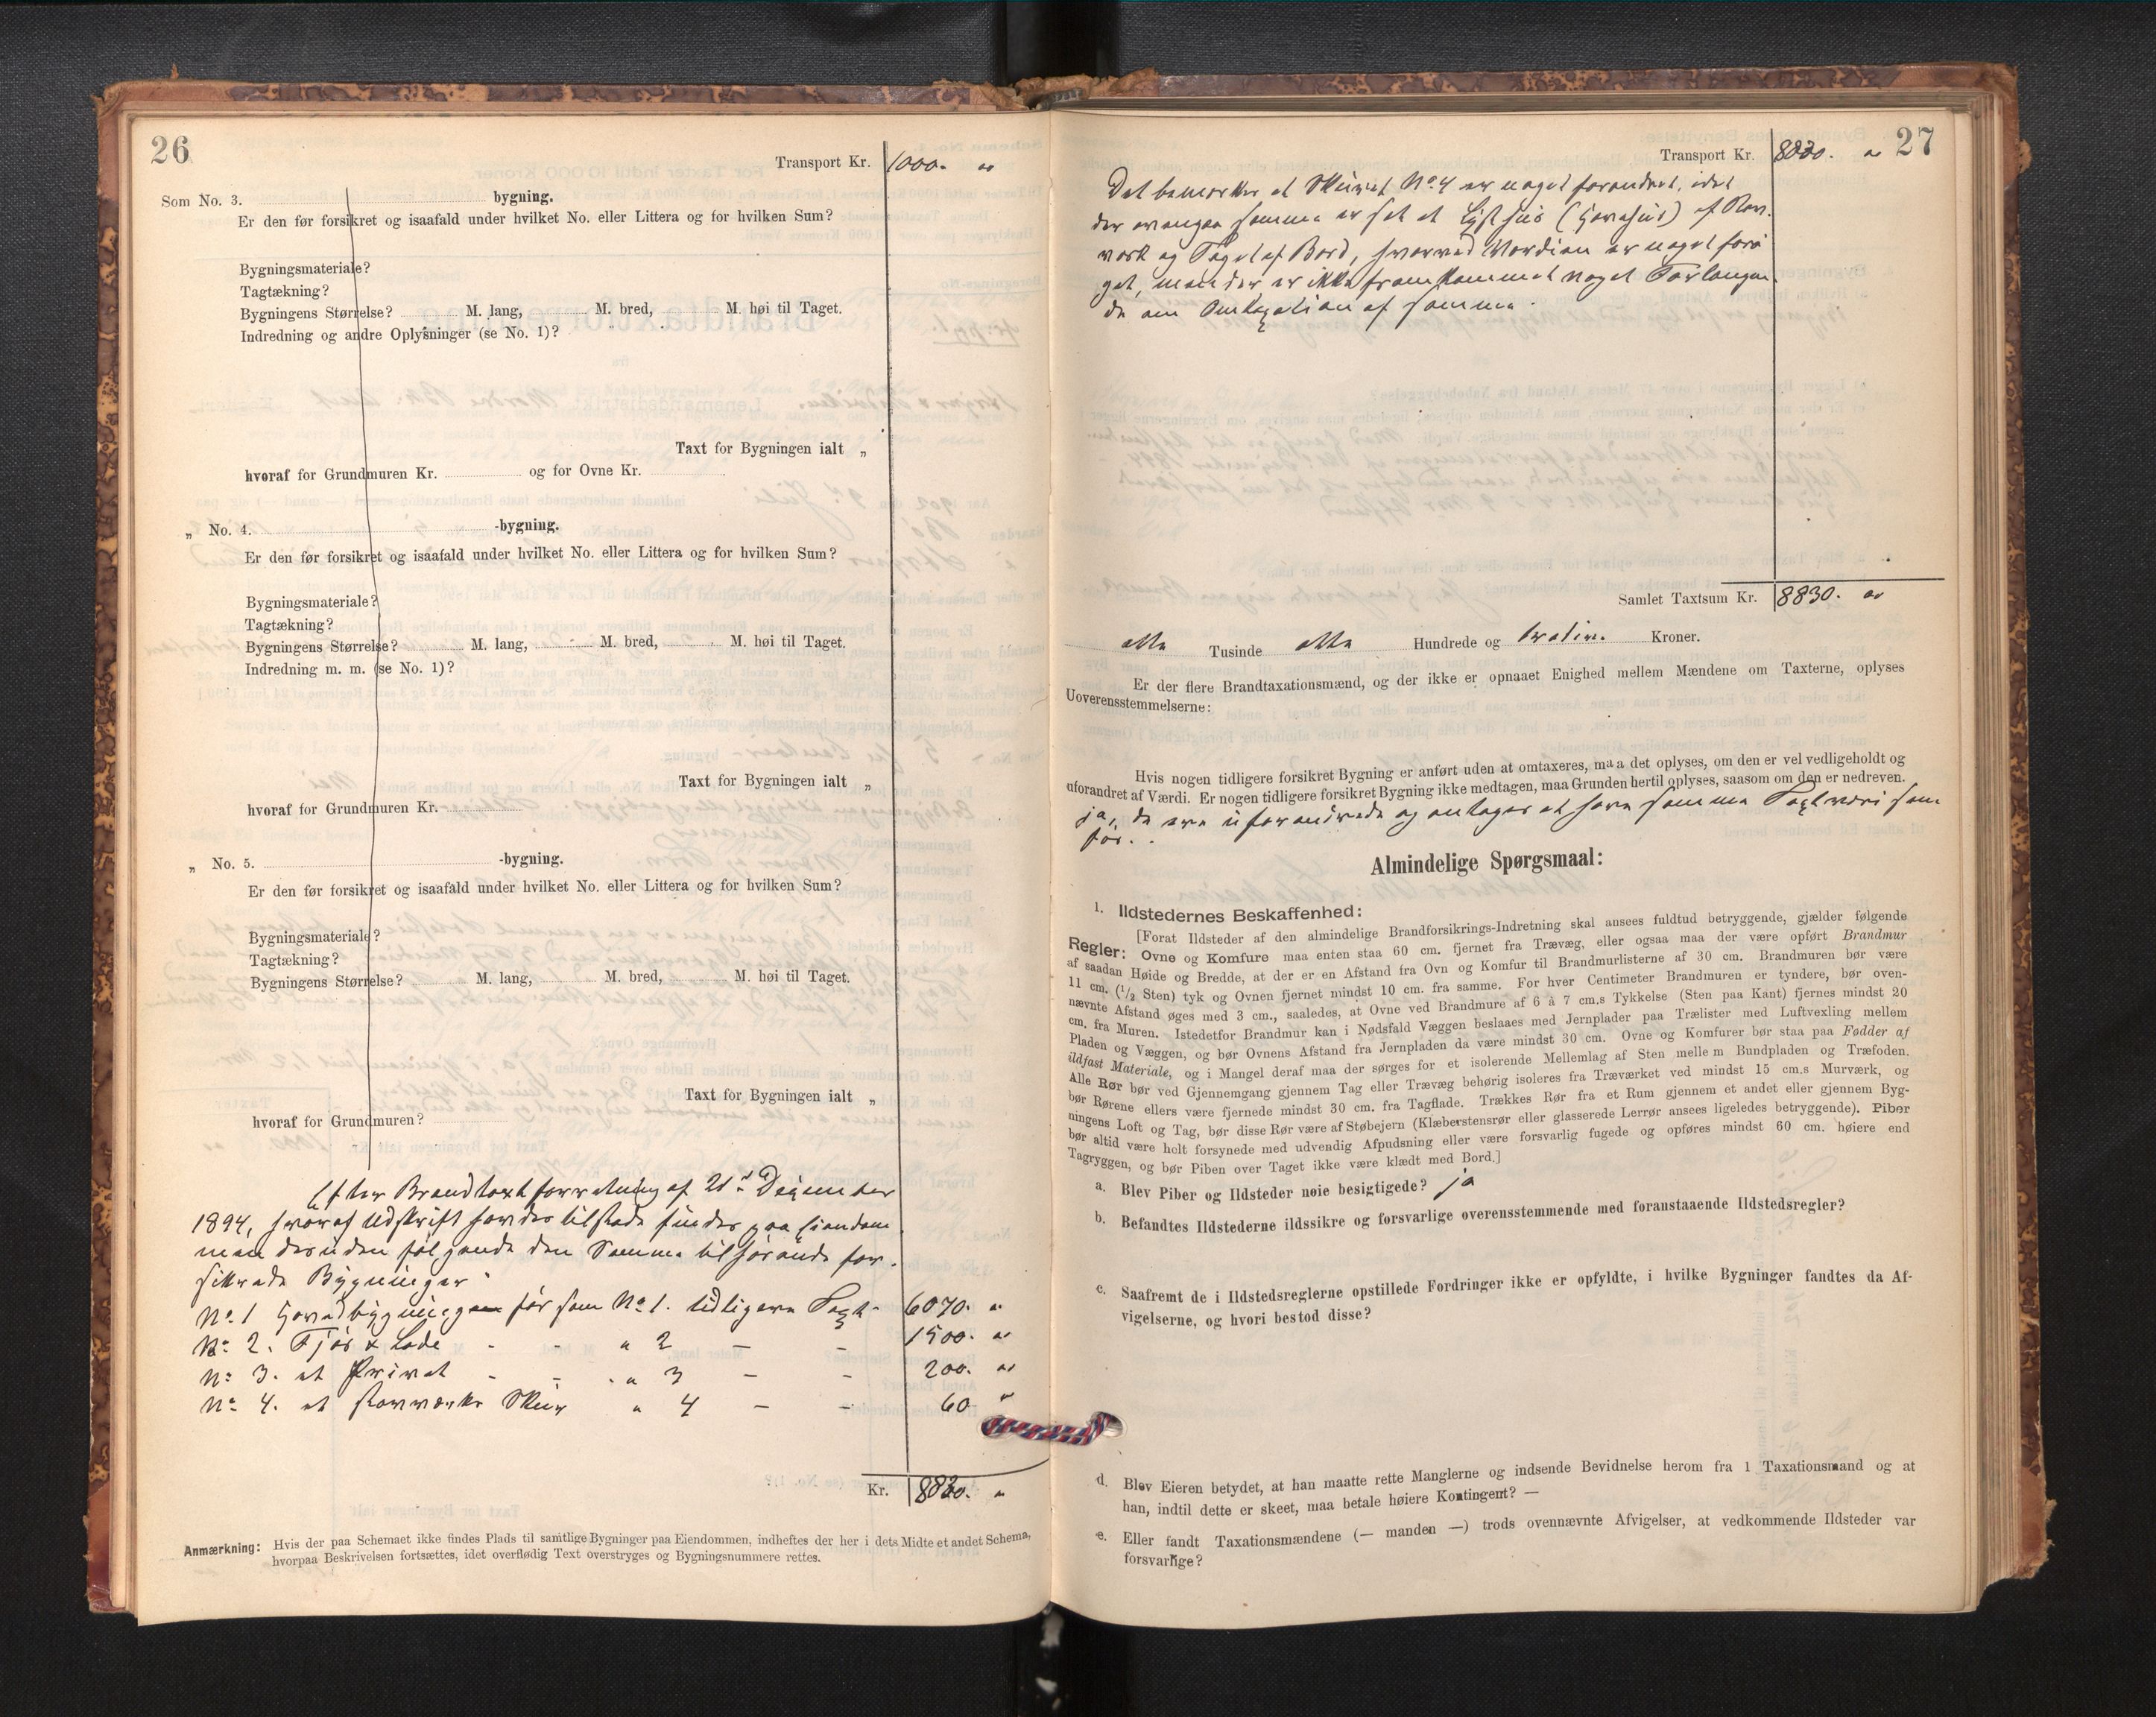 26
Transport Kr. 1000. "
Som No. 3. bygning.
Er den før forsikret og isaafald under hvilket No. eller Littera og for hvilken Sum?
Bygningsmateriale?
Tagtækning?
Bygningens Størrelse? M. lang, M. bred, M. høi til Taget.
Indredning og andre Oplysninger (se No. 1)?
Taxt for Bygningen ialt „
hvoraf for Grundmuren Kr. og for Ovne Kr.
„ No. 4. -bygning.
Er den før forsikret og isaafald under hvilket No. eller Littera og for hvilken Sum?
Bygningsmateriale?
Tagtækning?
Bygningens Størrelse? M. lang, M. bred, M. høi til Taget.
Indredning m. m. (se No. 1)?
Taxt for Bygningen ialt „
hvoraf for Grundmuren Kr.
„ No. 5. -bygning.
Er den før forsikret og isaafald under hvilket No. eller Littera og for hvilken Sum?
Bygningsmateriale?
Tagtækning?
Bygningens Størrelse? M. lang, M. bred, M. høi til Taget.
Taxt for Bygningen ialt „
hvoraf for Grundmuren?
Efter Brandtaxtforretning af 21de December
1894, hvoraf Udskrift fandes tilstede findes paa Eiendom
men desuden følgende den Samme tilhørende for-
sikrede Bygninger
No. 1 Hovedbygningen før som No. 1. tidligere Taxt - 6070. "
No. 2. Fjøs & Lade - - " 2 - - 1500. "
No. 3. et Privet - - " 3 - - 200. "
No. 4. et Stavværks Skur " 4 - - 60 "
Kr. 8830. "
Anmærkning: Hvis der paa Schemaet ikke findes Plads til samtlige Bygninger paa Eiendommen, indheftes der her i dets Midte et andet Schema,
hvorpaa Beskrivelsen fortsættes, idet overflødig Text overstryges og Bygningsnummere rettes.
27
Transport Kr. 8830. "
Det bemærkes at Skuret No. 4 er noget forandret, idet
der ovenpaa samme er sat et Lysthus (Havehus) af Stav-
værk og Taget af Bord, hvorved Værdien er noget forø
get, men der er ikke fremkommet noget Forlangen-
de om Omtaxation af samme.
Samlet Taxtsum Kr. 8830. "
otte Tusinde otte Hundrede og tretive. Kroner.
Er der flere Brandtaxationsmænd, og der ikke er opnaaet Enighed mellem Mændene om Taxterne, oplyses
Uoverensstemmelserne:
Hvis nogen tidligere forsikret Bygning er anført uden at omtaxeres, maa det oplyses, om den er vel vedligeholdt og
uforandret af Værdi. Er nogen tidligere forsikret Bygning ikke medtagen, maa Grunden hertil oplyses, saasom om den er nedreven.
ja, de ere uforandrede og antages at have samme Taxtværi som
før.
Almindelige Spørgsmaal:
1. Ildstedernes Beskaffenhed:
[Forat Ildsteder af den almindelige Brandforsikrings-Indretning skal ansees fuldtud betryggende, gjælder følgende
Regler: Ovne og Komfure maa enten staa 60 cm. fjernet fra Trævæg, eller ogsaa maa der være opført Brandmur
af saadan Høide og Bredde, at der er en Afstand fra Ovn og Komfur til Brandmurlisterne af 30 cm. Brandmuren bør være
11 cm. (½ Sten) tyk og Ovnen fjernet mindst 10 cm. fra samme. For hver Centimeter Brandmuren er tyndere, bør oven-
nævnte Afstand øges med 3 cm., saaledes, at Ovne ved Brandmure af 6 à 7 cm.s Tykkelse (Sten paa Kant) fjernes mindst 20
cm. fra Muren. Istedetfor Brandmur kan i Nødsfald Væggen beslaaes med Jernplader paa Trælister med Luftvexling mellem
Pladen og Væggen, og bør Ovnens Afstand fra Jernpladen da være mindst 30 cm. Ovne og Komfurer bør staa paa Fødder af
ildfast Materiale, og i Mangel deraf maa der sørges for et isolerende Mellemlag af Sten mellem Bundpladen og Træfoden.
Alle Rør bør ved Gjennemgang gjennem Tag eller Trævæg behørig isoleres fra Træværket ved mindst 15 cm.s Murværk, og
bør Rørene ellers være fjernede mindst 30 cm. fra Tagflade. Trækkes Rør fra et Rum gjennem et andet eller gjennem Byg-
ningens Loft og Tag, bør disse Rør være af Støbejern (Klæberstensrør eller glasserede Lerrør ansees ligeledes betryggende). Piber
bør altid være helt forsynede med udvendig Afpudsning eller være forsvarlig fugede og opføres mindst 60 cm. høiere end
Tagryggen, og bør Piben over Taget ikke være klædt med Bord.]
a. Blev Piber og Ildsteder nøie besigtigede? ja
b. Befandtes Ildstederne ildssikre og forsvarlige overensstemmende med foranstaaende Ildstedsregler?
c. Saafremt de i Ildstedsreglerne opstillede Fordringer ikke er opfyldte, i hvilke Bygninger fandtes da Af-
vigelserne, og hvori bestod disse?
d. Blev Eieren betydet, at han maatte rette Manglerne og indsende Bevidnelse herom fra 1 Taxationsmand og at
han, indtil dette er skeet, maa betale høiere Kontingent? —
e. Eller fandt Taxationsmændene (— manden —) trods ovennævnte Afvigelser, at vedkommende Ildsteder var
forsvarlige?